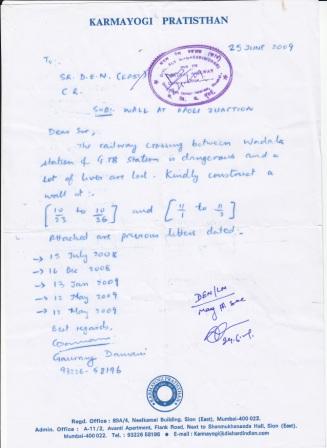 KARMAYOGI PRATISTHAN
25 JUNE 2009
To
SR. D.E.N. (EAST)
C R.
SUB: WALL AT RAOLI JUNCTION
Dear Sir,
The railway crossing between Wadala
station & GTB Station is dangerous and a
lot of lives are lost. Kindly construct a
wall at :-
[10/33 to 10/36] and [11/1 to 11/3]
Attached are previous letters dated -
→ 15 July 2008
→ 16 Dec 2008
→ 13 Jan 2009
→ 12 May 2009
→ 12 May 2009
Best regards,
Gaurang Damani
93226-58196
DEN/LM
May pl. see
24.6.
KARMAYOGI PRATISTHAN
Regd. Office : 89A/6, Neelkamal Building, Sion (East), Mumbai-400 022.
Admin. Office : A-11/2, Avanti Apartment, Flank Road, Next to Shanmukhananda Hall, Sion (East),
Mumbai-400 022. Tel. : 93226 58196 E-mail : Karmayogi@diehardindian.com